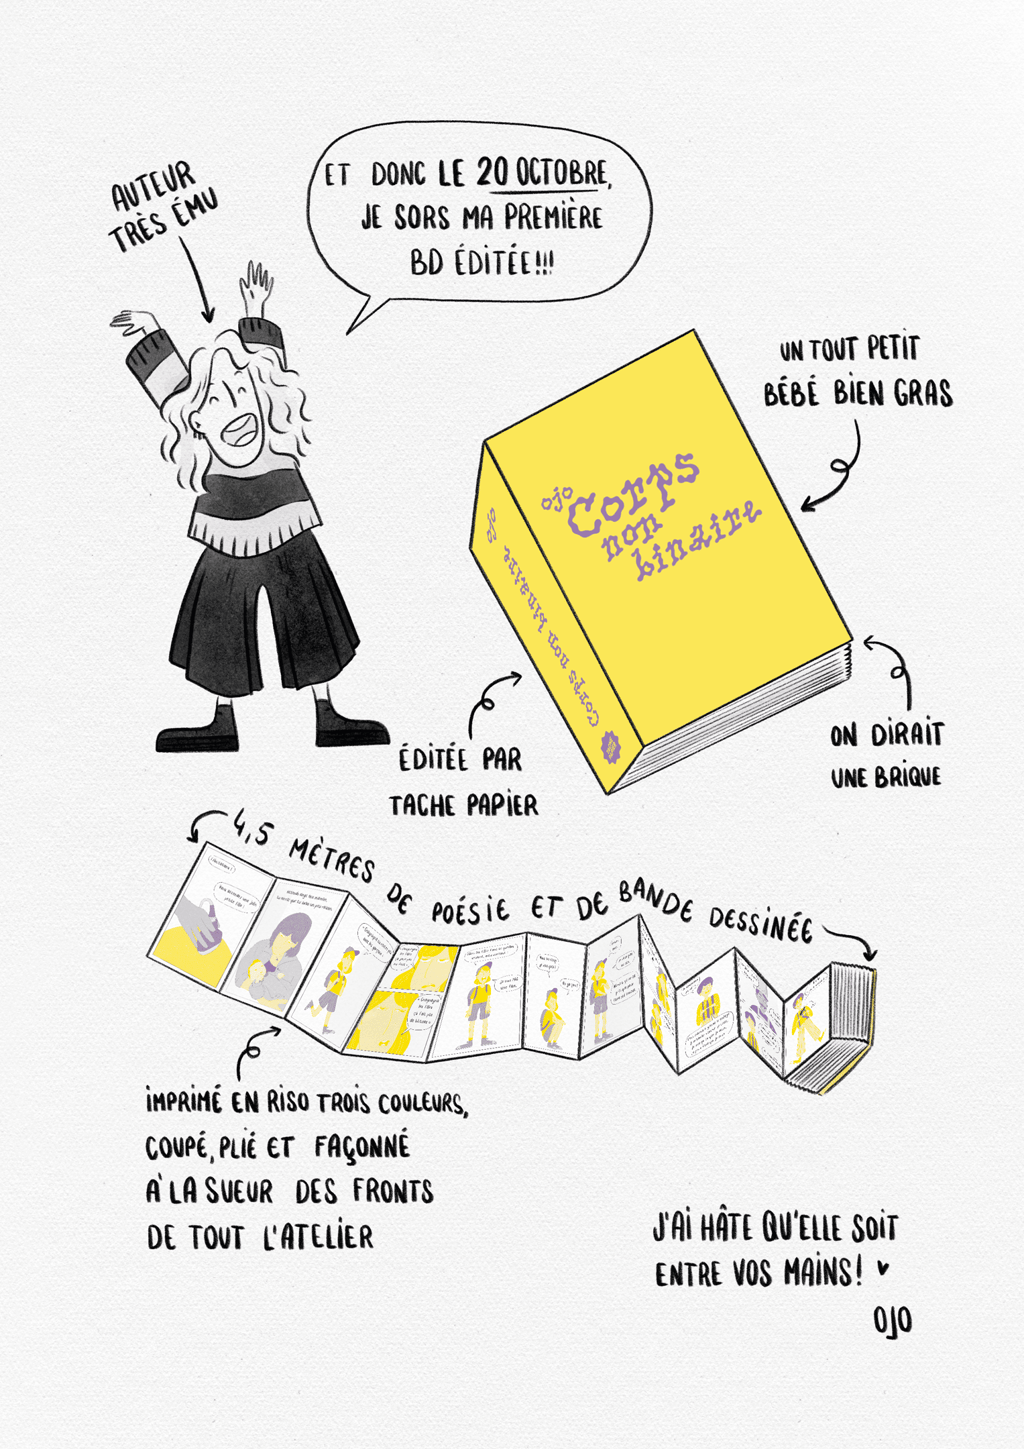 AUTEUR
TRÈS ÉMU
ET DONC LE 20 OCTOBRE,
JE SORS MA PREMIÈRE
BD ÉDITÉE!!!
UN TOUT PETIT
BÉBÉ BIEN GRAS
ojo
Corps
non
binaire
Corps non binaire ojo
ÉDITÉE PAR
TACHE PAPIER
ON DIRAIT
UNE BRIQUE
4,5 MÈTRES DE POÉSIE ET DE BANDE DESSINÉE
IMPRIMÉ EN RISO TROIS COULEURS,
COUPÉ, PLIÉ ET FAÇONNÉ
À LA SUEUR DES FRONTS
DE TOUT L'ATELIER
J'AI HÂTE QU'ELLE SOIT
ENTRE VOS MAINS! ♥
OJO